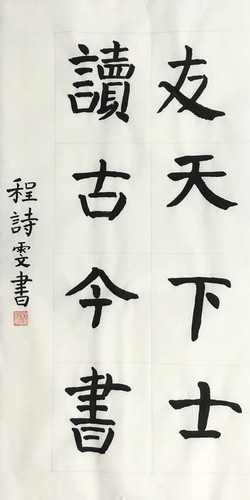 友天下士
讀古今書
程詩雯書